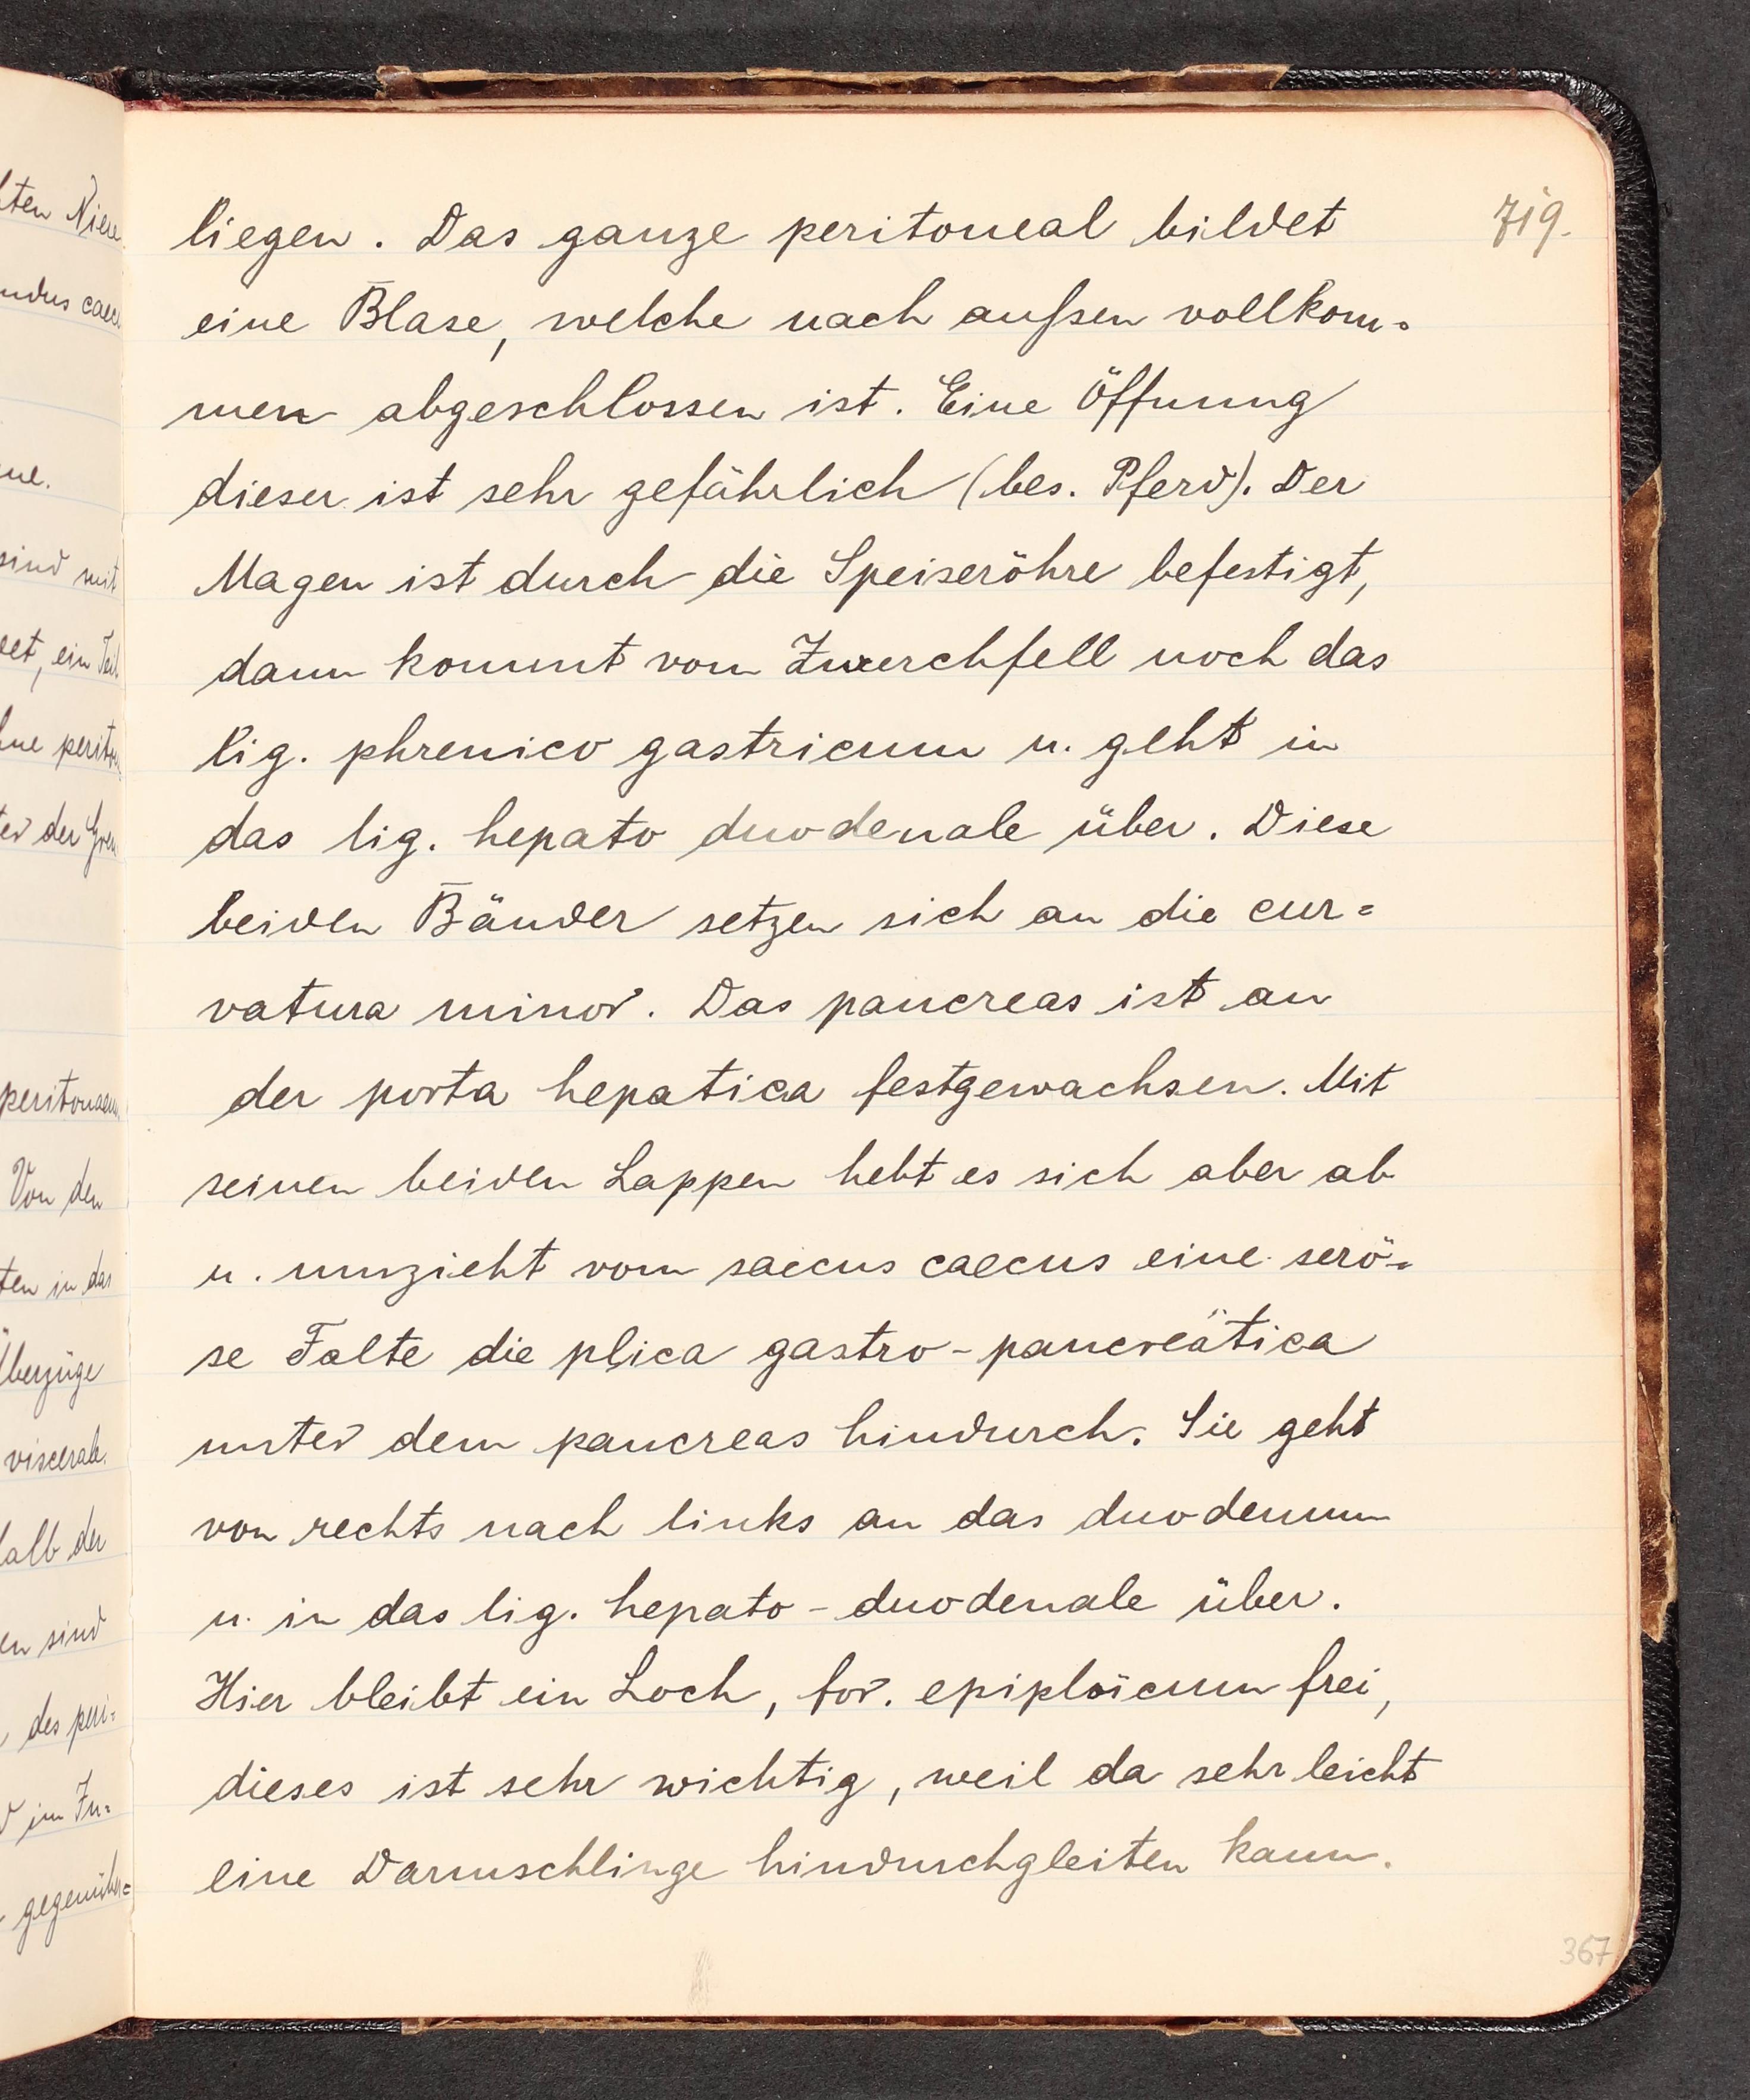 719.
liegen. Das ganze peritoneal bildet
eine Blase, welche nach außen vollkom=
men abgeschlossen ist. Eine Öffnung
dieser ist sehr gefährlich (bes. Pferd). Der
Magen ist durch die Speiseröhre befestigt,
dann kommt vom Zwerchfell noch das
lig. phrenico gastricum u. geht in
das lig. hepato duodenale über. Diese
beiden Bänder setzen sich an die cur=
vatura minor. Das pancreas ist an
der porta hepatica festgewachsen. Mit
seinen beiden Lappen hebt es sich aber ab
u. umzieht vom saccus caecus eine serö=
se Falte die plica gastro-pancreätica
unter dem pancreas hindurch. Sie geht
von rechts nach links an das duodenum
u. in das lig. hepato-duodenale über.
Hier bleibt ein Loch, for. epiploicum frei,
dieses ist sehr wichtig, weil da sehr leicht
eine Darmschlinge hindurchgleiten kann.
367
ten Niere
caeci
sind mit
ein Teil
der
peritonaeum
Von den
ten in das
Überzüge
viscerale
halb der
en sind
des peri=
im In=
gegenüber=